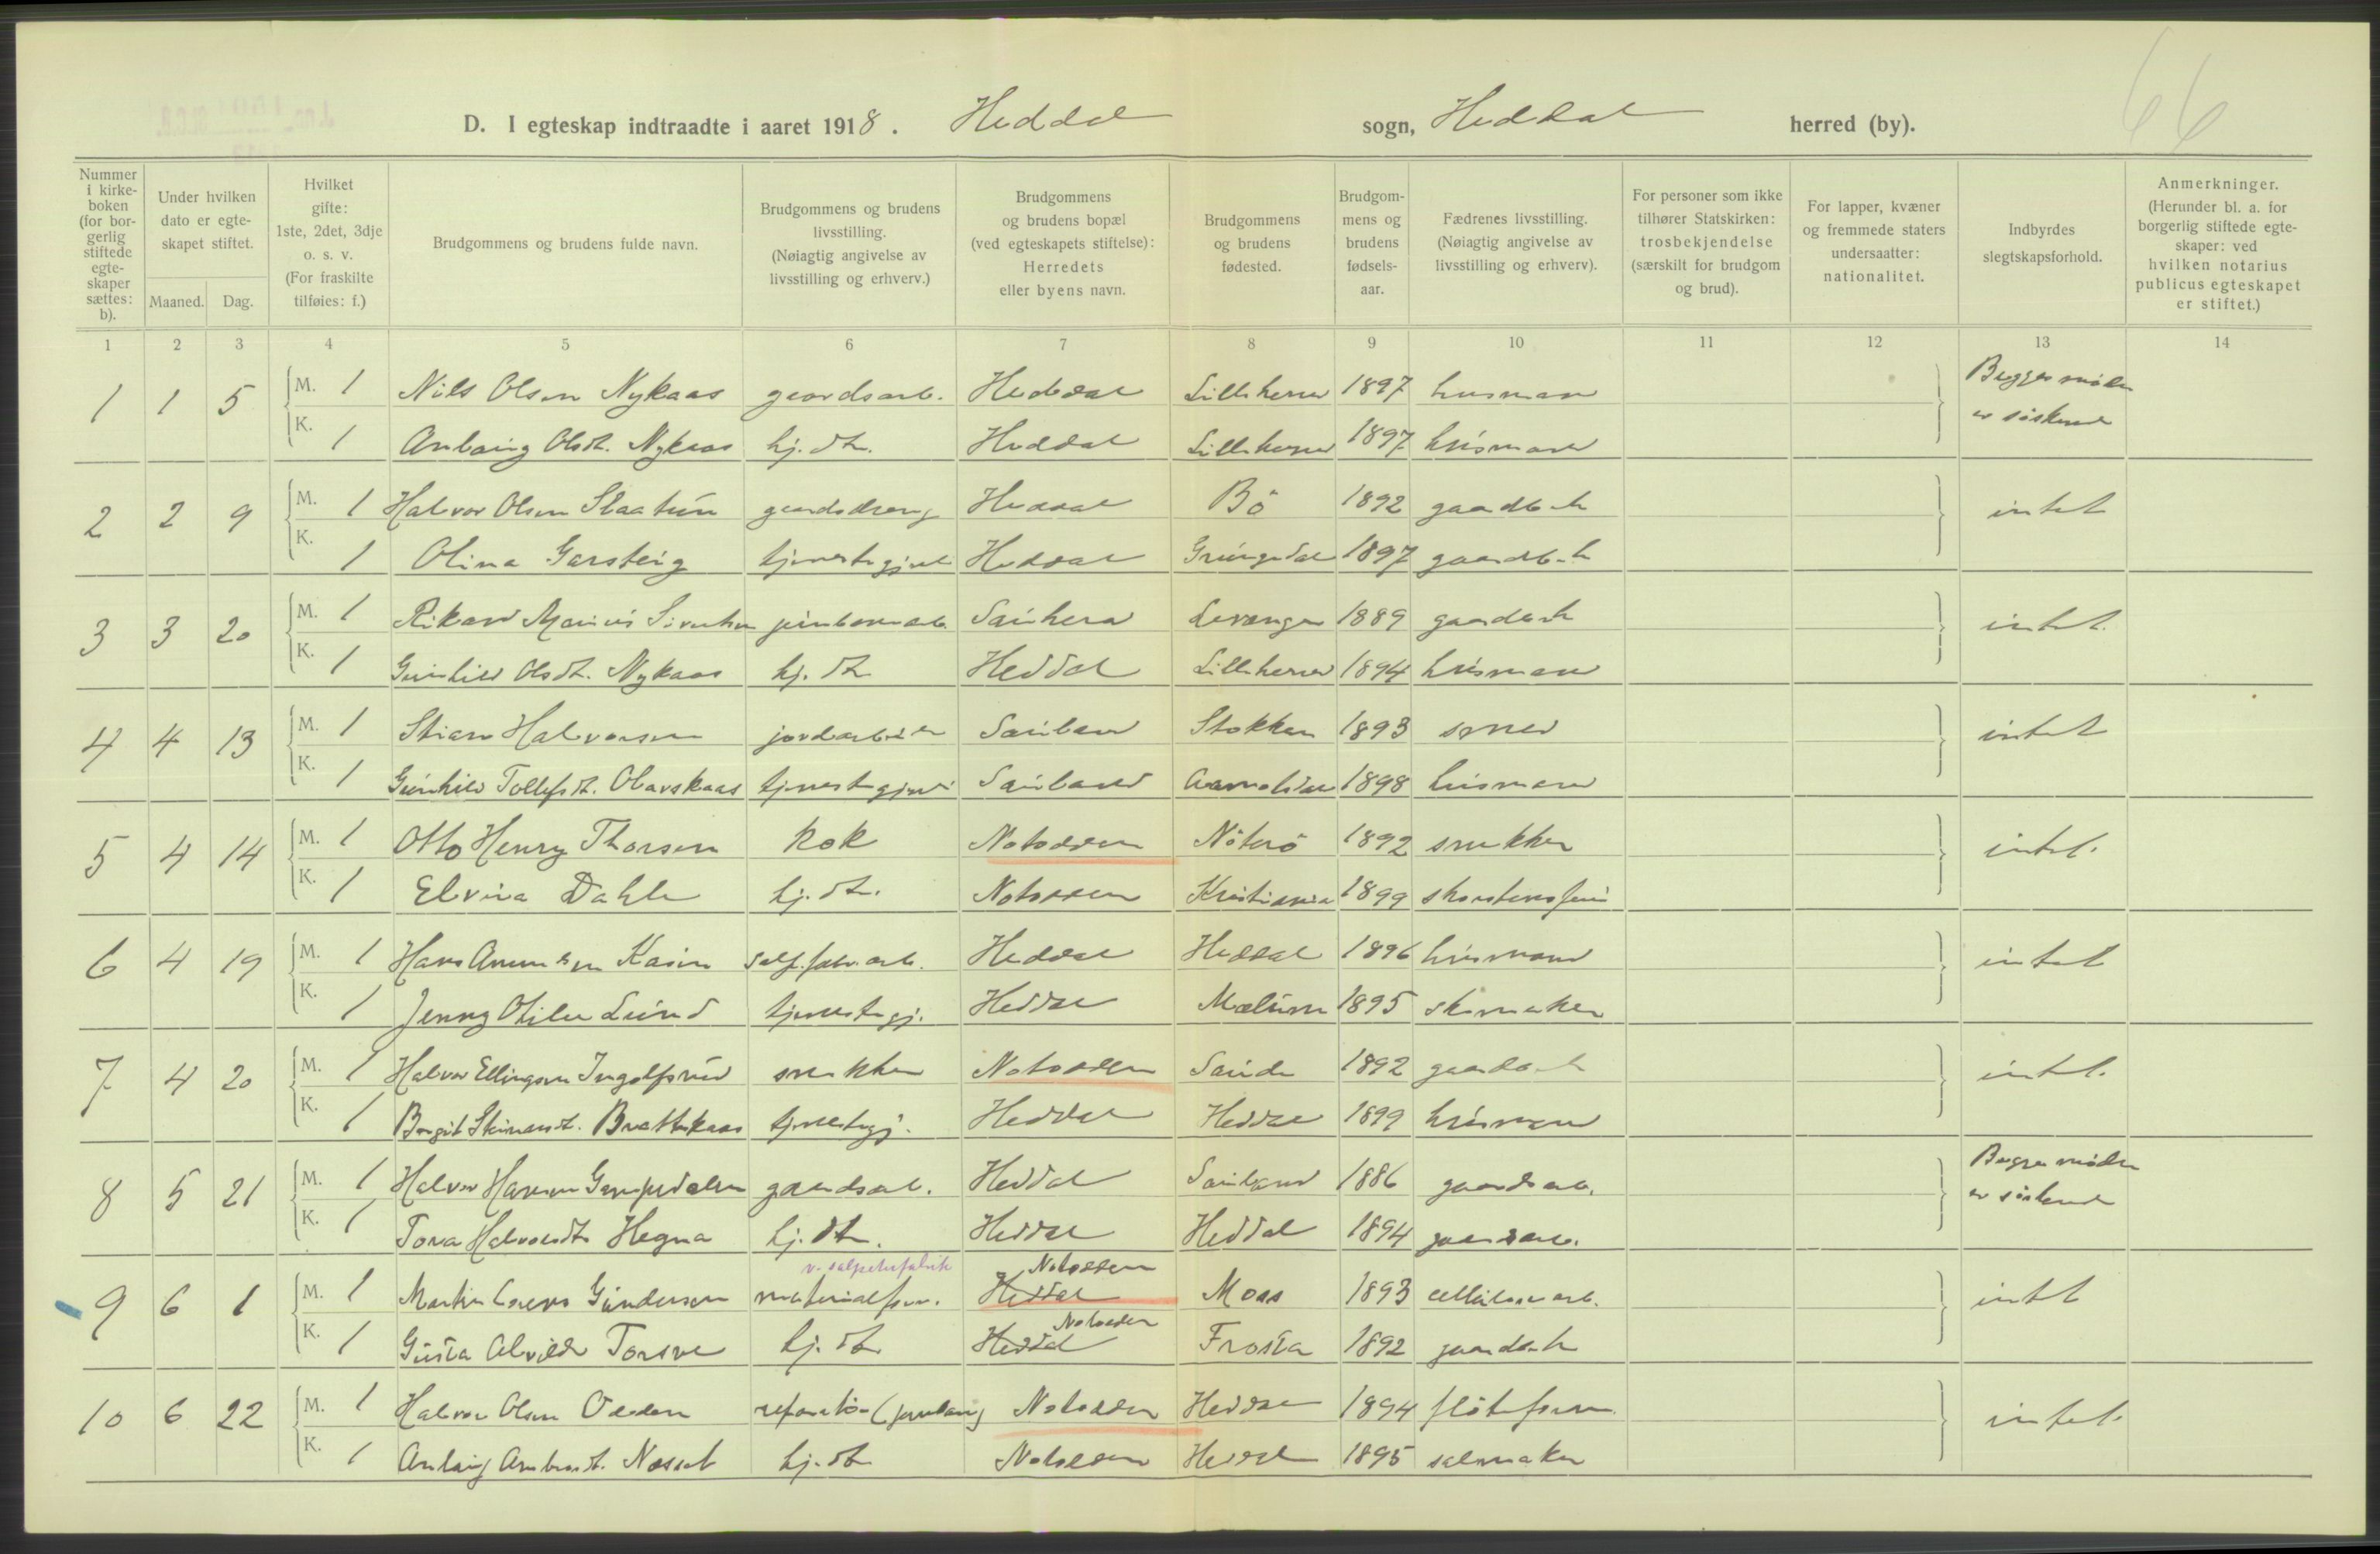 66
D. I egteskap indtraadte i aaret 1918. Heddal sogn, Heddal herred (by).
Nummer i kirke-boken (for bor-gerlig stiftede egte-skaper sættes: b).
Under hvilken dato er egte-skapet stiftet.
Maaned. Dag.
Hvilket gifte: 1ste, 2det, 3dje o. s. v. (For fraskilte tilføies: f.)
Brudgommens og brudens fulde navn.
Brudgommens og brudens livsstilling. (Nøiagtig angivelse av livsstilling og erhverv.)
Brudgommens og brudens bopæl (ved egteskapets stiftelse): Herredets eller byens navn.
Brudgommens og brudens fødested.
Brudgom-mens og brudens fødsels-aar.
Fædrenes livsstilling. (Nøiagtig angivelse av livsstilling og erhverv).
For personer som ikke tilhører Statskirken: trosbekjendelse (særskilt for brudgom og brud).
For lapper, kvæner og fremmede staters undersaatter: nationalitet.
Indbyrdes slegtskapsforhold.
Anmerkninger. (Herunder bl. a. for borgerlig stiftede egte-skaper: ved hvilken notarius publicus egteskapet er stiftet.)
1 2 3 4 5 6 7 8 9 10 11 12 13 14
1 1 5 M. 1 Nils Olsen Nykaas gaardsarb. Heddal Lilleherred 1897 husmand Begges mødre
K. 1 Anbaug Olsdt. Nykaas hj. dt. Heddal Lilleherred 1897 husmand er søskende
2 2 9 M. 1 Halvor Olsen Slaatun gaardsdreng Heddal Bö 1892 gaardb. intet
K. 1 Olina Garsteig tjenestegjent Heddal Grungedal 1897 gaardb.
3 3 20 M. 1 Rikard Marius Sivertsen jernbanearb. Sauherad Levanger 1889 gaardb. intet.
K. 1 Gunhild Olsdt. Nykaas hj. dt. Heddal Lilleherred 1894 husmand
4 4 13 M. 1 Stian Halvorsen jordarbeider Sauland Stokken 1893 smed intet
K. 1 Gunhild Tollefsdt. Olavskaas tjenestegjent Sauland 1898 husmand
5 4 14 M. 1 Otto Henry Thorsen kok Notodden Nöterö 1892 snekker intet.
K. 1 Elvira Dahle hj. dt. Notodden Kristiania 1899 skorstensfeier
6 4 19 M. 1 Hans Kasin salp.fabr.arb. Heddal Heddal 1896 husmand intet
K. 1 Jenny Otilie Lund tjenestegj. Heddal Mælum 1895 skomaker
7 4 20 M. 1 Halvor Ellingsen Ingolfsrud snekker Notodden Saude 1892 gaardb. intet.
K. 1 Bergit Steinarsdt. Brattekaas tjenestegj. Heddal Heddal 1899 husmand
8 5 21 M. 1 Halvor Hansen gaardsarb. Heddal Sauland 1886 gaardsarb. Begges mødre
K. 1 Tona Halvorsdt. Hegna hj. dt. Heddal Heddal 1894 gaardsarb. er søskende
v. salpeterfabrik Notodden
9 6 1 M. 1 Martin Gundersen materialforv. Heddal Moss 1893 cellulosearb. intet
Notodden
K. 1 Gusta Alvilde Torsve hj. dt. Heddal Frosta 1892 gaardb.
10 6 22 M. 1 Halvor Olsen Ödden reparatör (jernbane) Notodden Heddal 1894 flöteform. intet.
K. 1 Anlaug Nesset hj. dt. Notodden Heddal 1895 salmaker